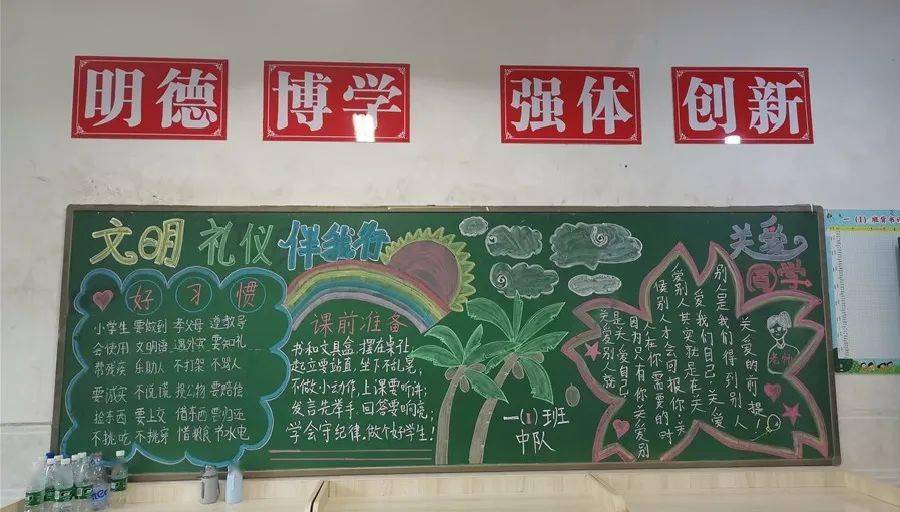 明德
博学
强体
创新
文明 礼仪 伴我行
好习惯
小学生 要做到 孝父母 遵教导
会使用 文明语 遇外宾 要知礼
帮残疾 乐助人 不打架 不骂人
要诚实 不说谎 损公物 要赔偿
拾东西 要上交 借东西 要归还
不挑吃 不挑穿 惜粮 节水电
课前准备
书和文具盒,摆在桌让,
起立要站直,坐下不乱晃,
不做小动作,上课要听讲;
发言先举手,回答要响亮;
学会守纪律,做个好学生!
一(1)班
中队
关爱
同学
关爱的前提!
别人是我们得到别人
爱我们自己;关爱
爱别人其实就是在关
候别人才会回报你,关
人在你需要的时
自为只有你关爱别
是关爱自己,
关爱别人就
一(1)班